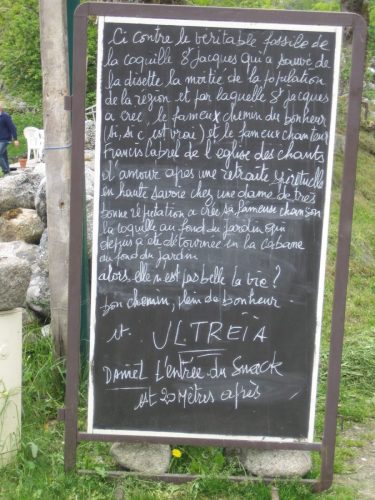 Ci contre le veritable fossile de
la coquille St Jacques qui a sauvé de
la disette la moitié de la population
de la région et par laquelle St Jacques
a crée, le fameux chemin du bonheur
(si, si c'est vrai) et le fameux chanteur
Francis Cabrel de l'eglise des chants
d'amour apres une retraite spirituelle
en haute savoie chez une dame de très
bonne réputation a crée sa fameuse chanson
la coquille au fond du jardin qui
depuis a été détournée en la cabane
du fond du jardin
alors elle n'est pas belle la vie?
bon chemin, plein de bonheur
et ULTREÏA
DANIEL L'entrée du Snack
est 20 Mètres après